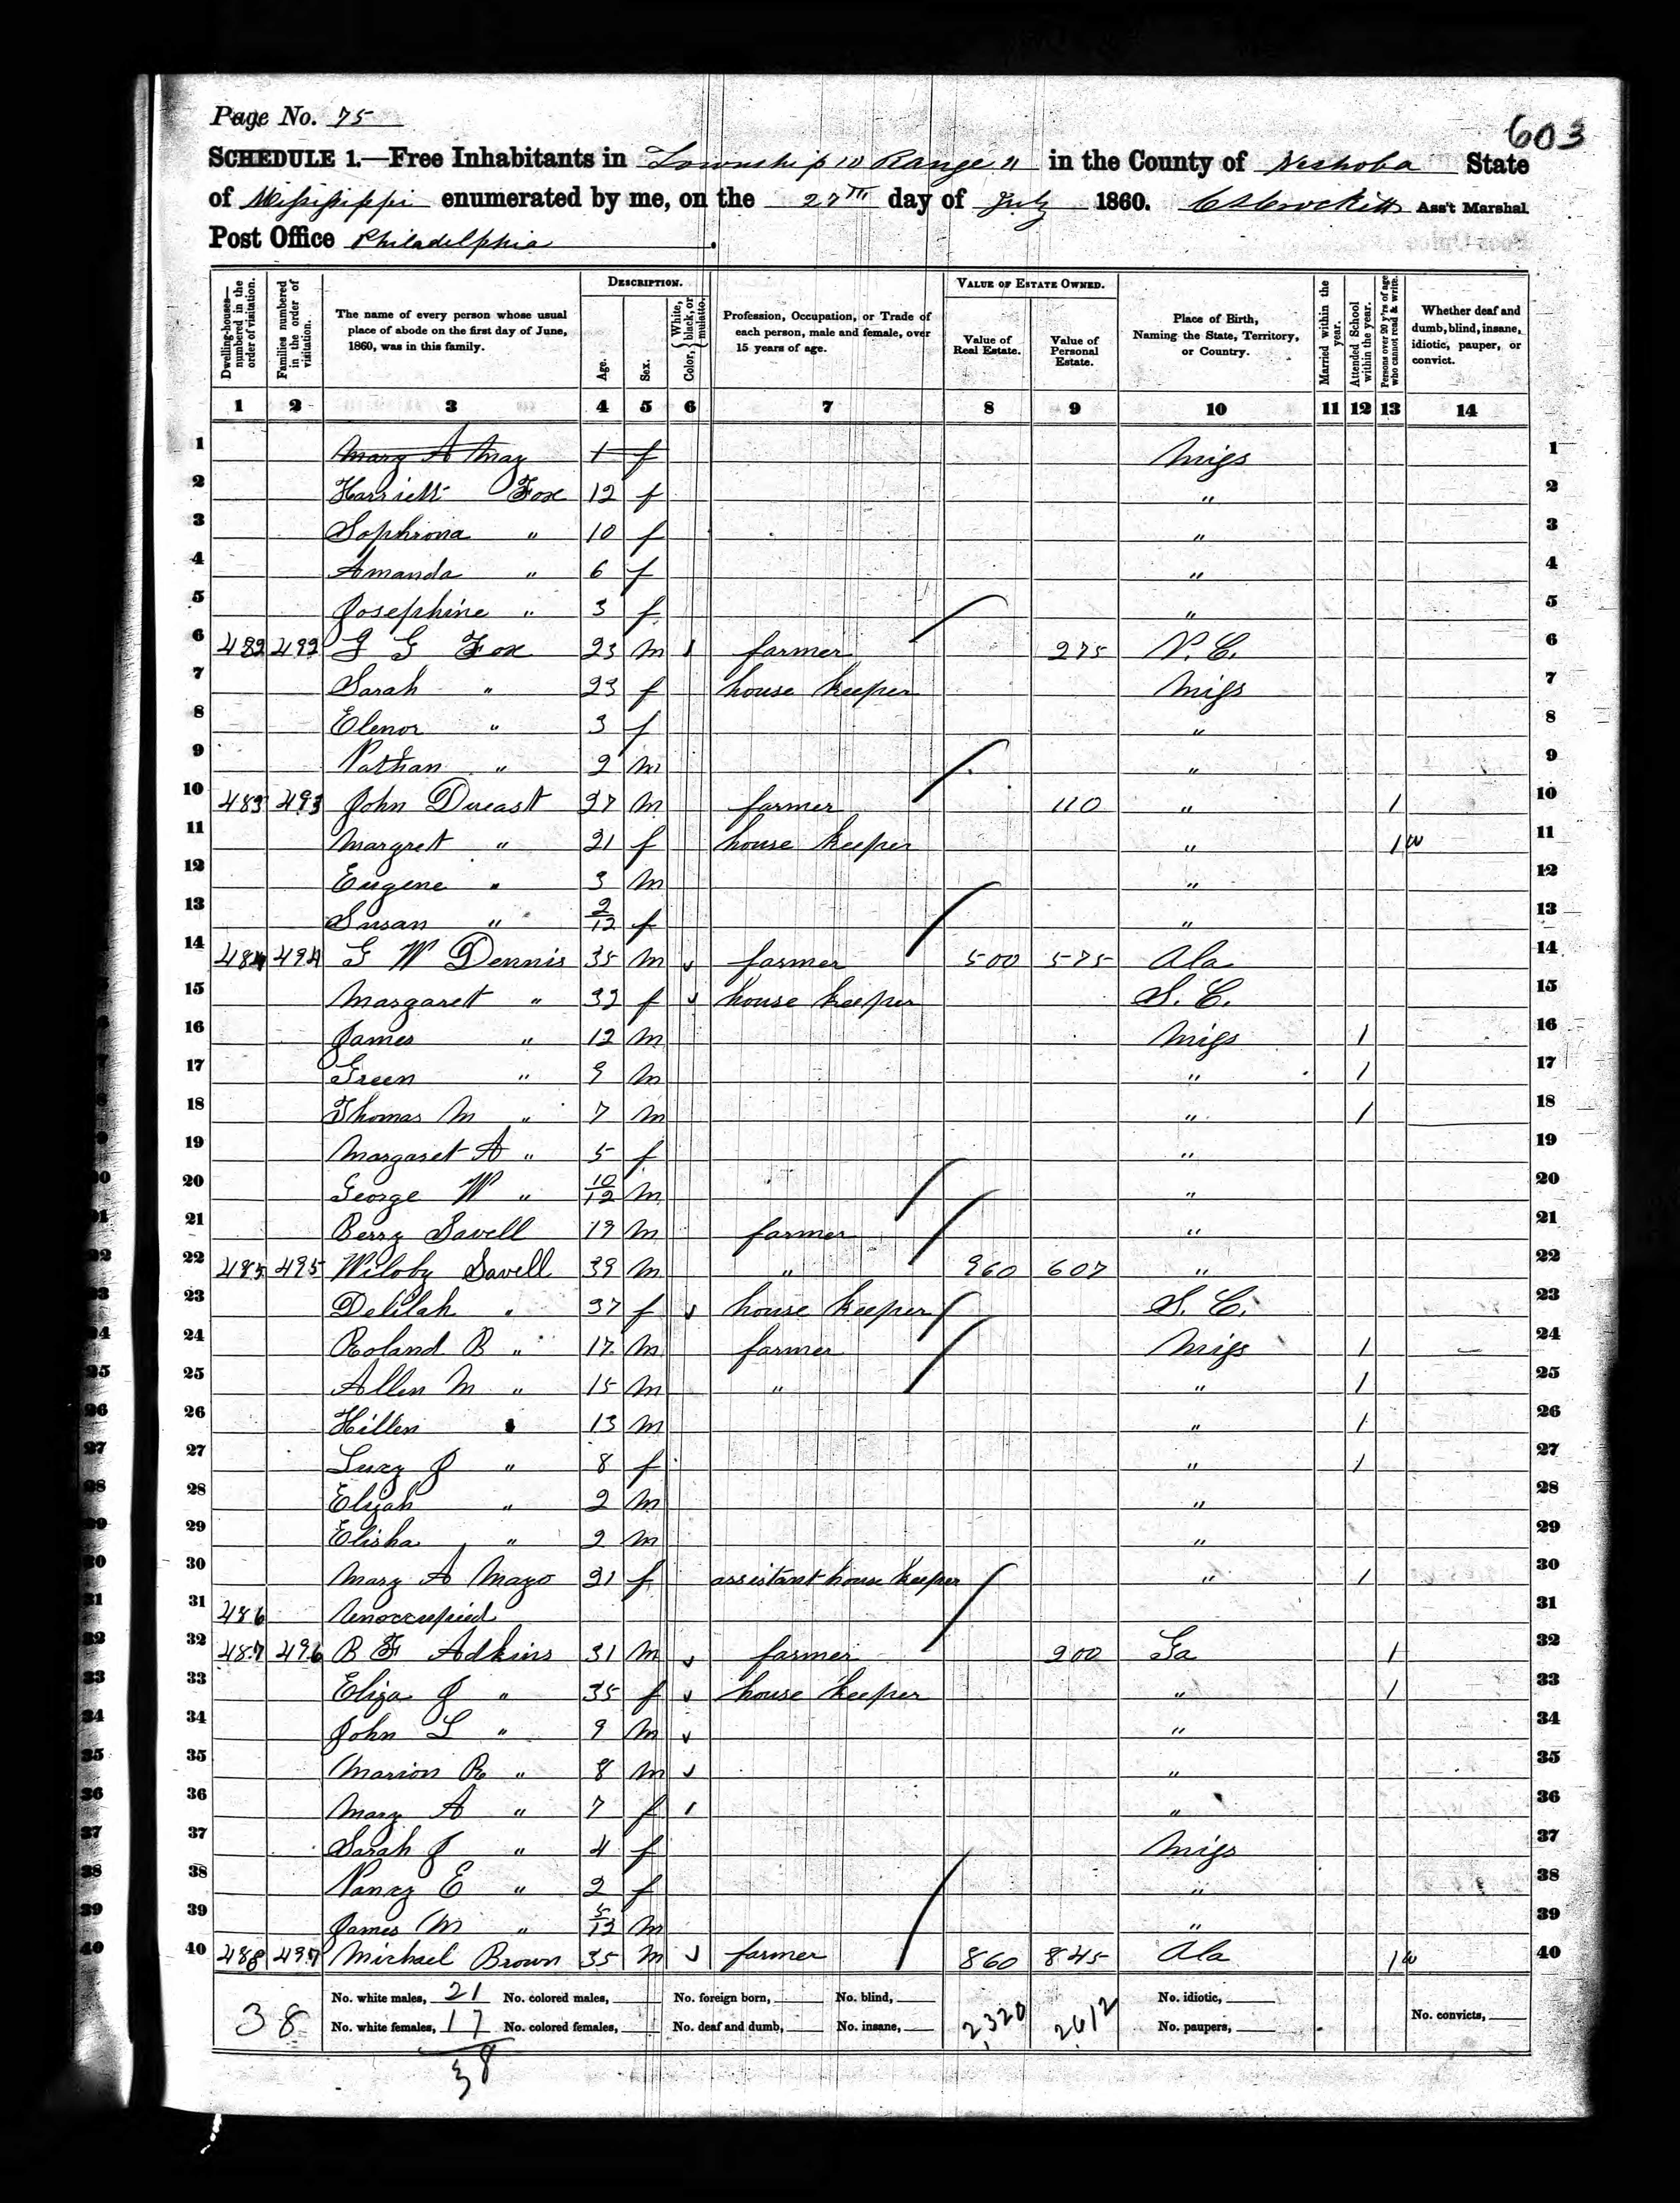 Page No. 75
603
SCHEDULE 1.—Free Inhabitants in Township 10 Range 11 in the County of Neshoba State
of Missippi enumerated by me, on the 27TH day of July 1860. Ass't Marshal
Post Office Philadelphia.
DESCRIPTION. VALUE OF ESTATE OWNED.
Dwelling-houses— numbered in the order of visitation. Families numbered in the order of visitation. The name of every person whose usual place of abode on the first day of June, 1860, was in this family. Age. Sex. Color, White, black, or mulatto. Profession, Occupation, or Trade of each person, male and female, over 15 years of age. Value of Real Estate. Value of Personal Estate. Place of Birth, Naming the State, Territory, or Country. Married within the year. Attended School within the year. Persons over 20 y'rs of age who cannot read & write. Whether deaf and dumb, blind, insane, idiotic, pauper, or convict.
1 2 3 4 5 6 7 8 9 10 11 12 13 14
1 Mary A May 1 f Miss 1
2 Harriett Fox 12 f " 2
3 Sophrona " 10 f " 3
4 Amanda " 6 f " 4
5 Josephine " 3 f " 5
6 482 492 G Fox 23 m farmer 275 N. C. 6
7 Sarah " 23 f house keeper Miss 7
8 Elenor " 3 f " 8
9 Nathan " 2 m " 9
10 483 493 John 27 m farmer 110 " 1 10
11 Margret " 21 f house keeper " 1 w 11
12 Eugene " 3 m " 12
13 Susan " 2/12 f " 13
14 484 494 G W Dennis 35 m farmer 500 575 Ala 14
15 Margarett " 32 f house keeper S. C. 15
16 James " 12 m Miss 1 16
17 Green " 9 m " 1 17
18 Thomas M " 7 m " 1 18
19 Margaret A " 5 f " 19
20 George W " 10/12 m " 20
21 Berry Savell 19 m farmer " 21
22 485 495 Wiloby Savell 39 m " 960 607 " 22
23 Delilah " 37 f house keeper S. C. 23
24 Roland B " 17 m farmer Miss 1 24
25 Allen M " 15 m " " 1 25
26 Hillen " 13 m " 1 26
27 Lucy J " 8 f " 1 27
28 Elijah " 2 m " 28
29 Elisha " 2 m " 29
30 Mary A Mayo 21 f assistant house keeper " 1 30
31 486 Unoccupied 31
32 487 496 B F Adkins 31 m farmer 200 Ga 1 32
33 Eliza J " 35 f house keeper " 1 33
34 John L " 9 m " 34
35 Marion R " 8 m " 35
36 Mary A " 7 f " 36
37 Sarah J " 4 f Miss 37
38 Nancy E " 2 f " 38
39 James M " 5/12 m " 39
40 488 497 Michael Brown 35 m farmer 860 845 Ala 1 w 40
38 No. white males, 21 No. colored males, No. foreign born, No. blind, 2320 2612 No. idiotic,
No. white females, 17 No. colored females, No. deaf and dumb, No. insane, No. paupers, No. convicts,
38